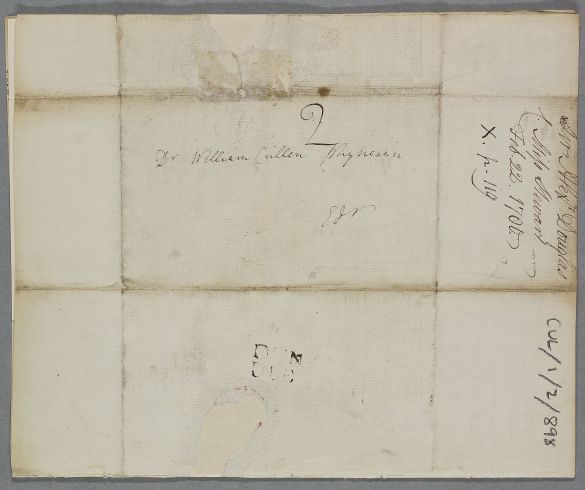 2
Dr William Cullen Physician
Edr
Dr Alexr Douglas
Miss Steuart
Feb. 22. 178
X. p. 119
CUL/1/2/898